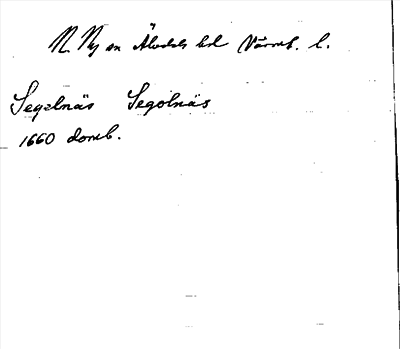 N. Ny sn Älvdals hd Värmb. l.
Segelnäs Segolnäs
1660 domb.